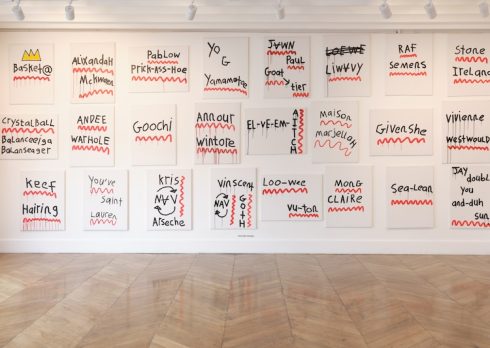 Basket@
ALiXandah
McKween
PabLow
Prick-Ass-Hoe
Yo
G
Yamamotae
JAWN
Paul
Goat
tier
LOEWE
LiWAVY
RAF
Semens
Stone
crystal Ball
Balanseager
ANDEE
WARHOLE
Goochi
Annour
wintore
EL-VE-EM-
AITCH
maison
marjellah
Givenshe
vivienne
westwould
Keef
Hairing
You've
Saint
Lauren
kris
NAV
Alseche
vinscent
NAV
GOTH
Loo-wee
vu-ton
MONG
CLAIRE
Sea-Lean
JAY
doubl
you
and-duh
sun